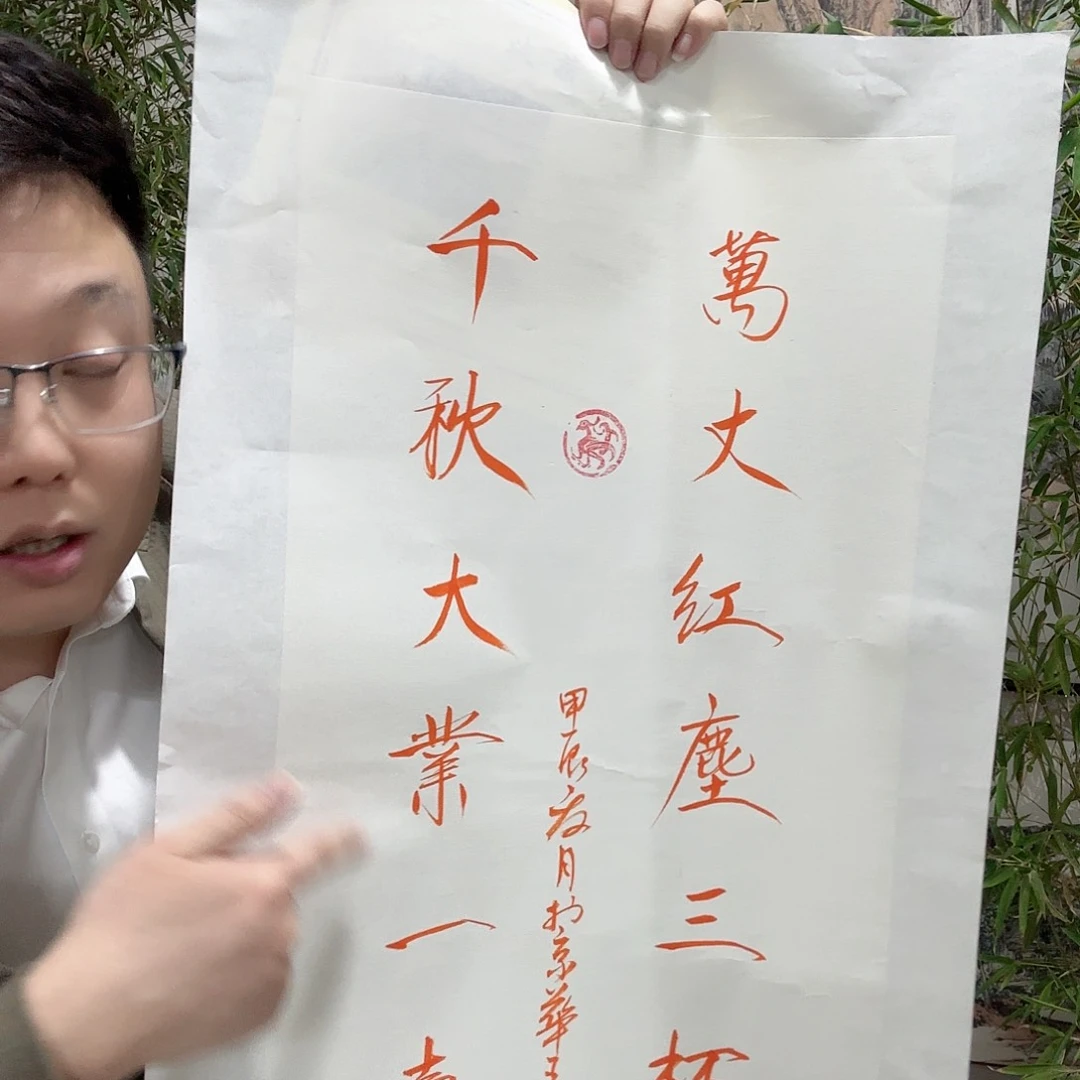 萬丈紅塵三杯
千秋大業一壺
甲辰夏月於京華